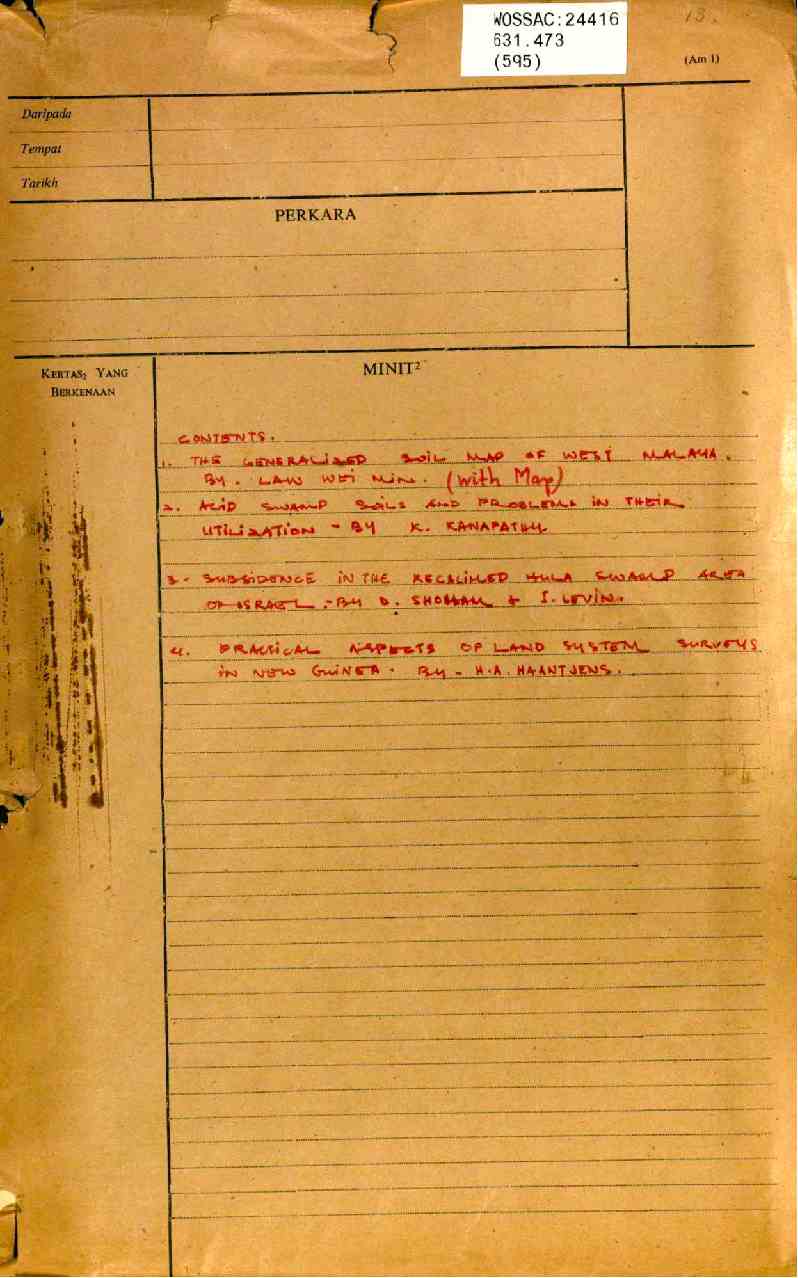 WOSSAC:24416
631.473
(595)
13.
(Am 1)
Daripada
Tempat
Tarikh
PERKARA
KERTAS2 YANG
BERKENAAN
MINIT2
CONTENTS.
1. THE GENERALISED SOIL MAP OF WEST MALAYA.
BY. LAW WEI MIN. (with Map)
2. ACID SWAMP SOILS AND PROBLEMS IN THEIR
UTILIZATION - BY K. KANAPATHY
3. SUBSIDENCE IN THE RECALIMED HULA SWAMP AREA
OF ISRAEL - BY D. SHOHAM & I. LEVIN.
4. PRACTICAL ASPECTS OF LAND SYSTEM SURVEYS
IN NEW GUINEA. BY - H.A. HAANTJENS.